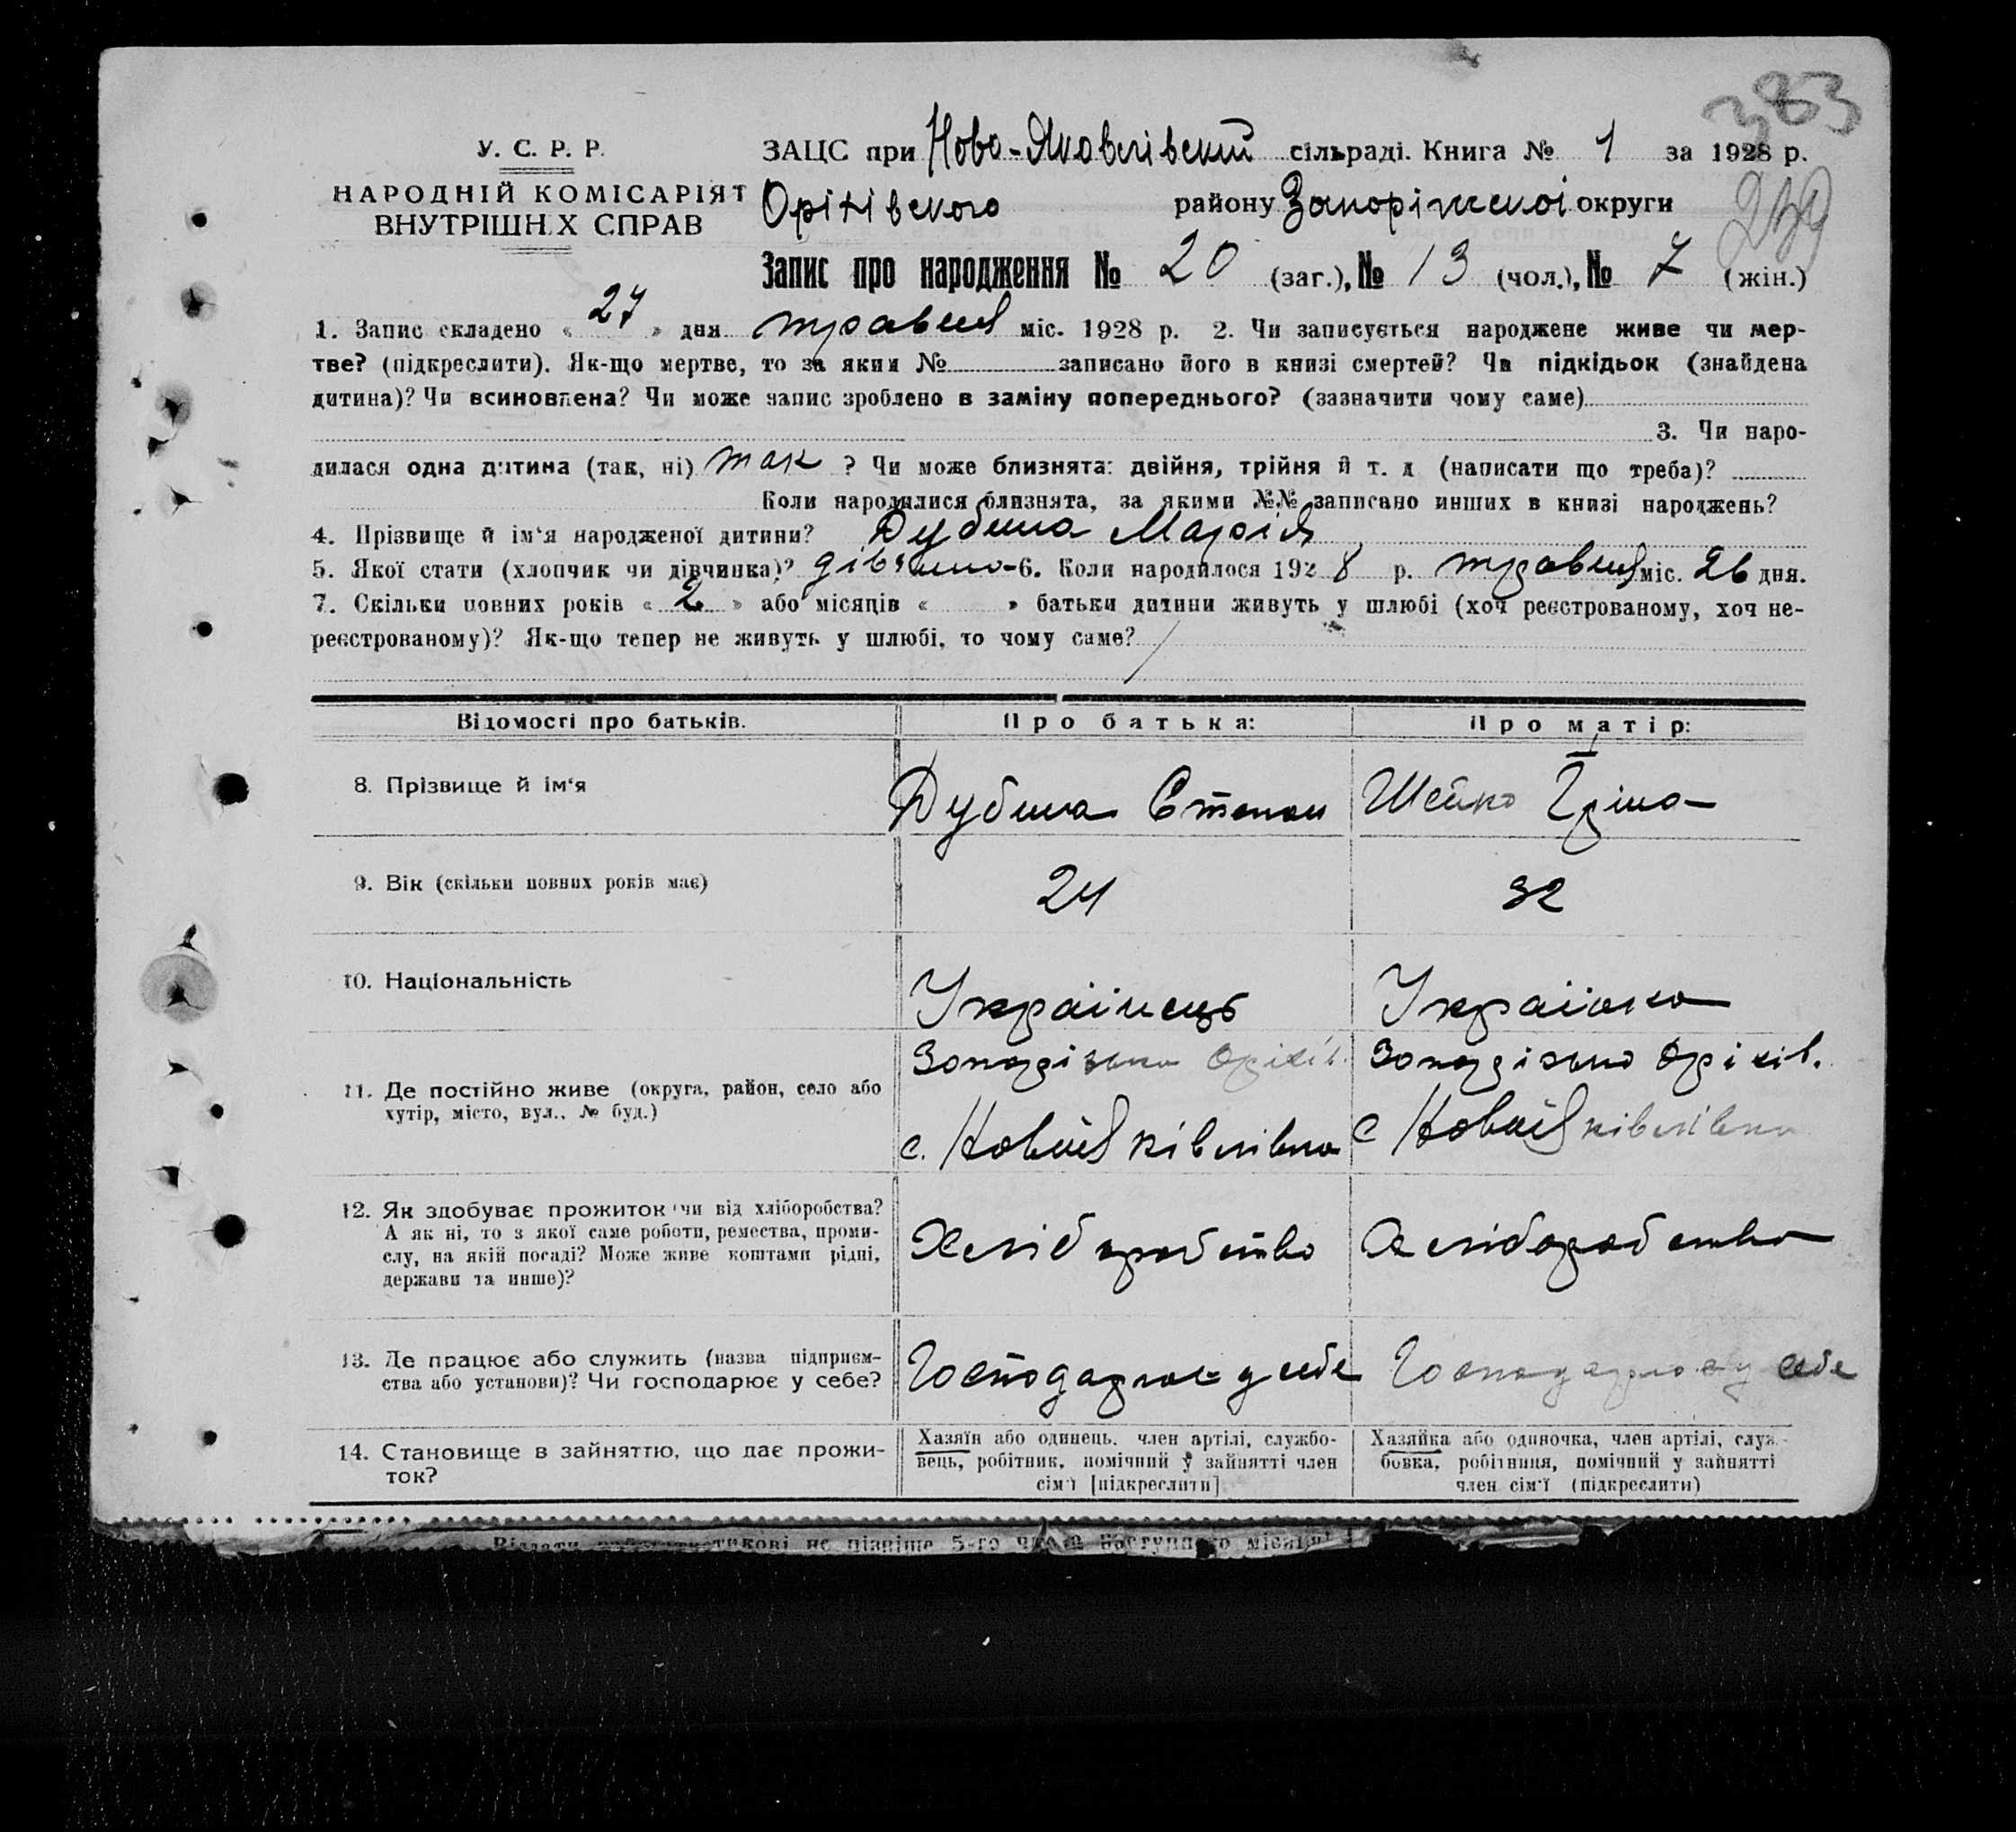 383
У. С. Р. Р.
НАРОДНІЙ КОМІСАРІЯТ
ВНУТРІШН.Х СПРАВ
ЗАЦС при Ново-Яковлівській сільраді. Книга № 1 за 1928 р.
Оріхівского району Запоріжської округи
Запис про народження № 20 (заг.), № 13 (чол.), № 7 (жін.)
1. Запис складено « 27 » дня травня міс. 1928 р. 2. Чи записується народжене живе чи мер-
тве? (підкреслити). Як-що мертве, то за яким № записано його в книзі смертей? Чи підкідьок (знайдена
дитина)? Чи всиновлена? Чи може запис зроблено в заміну попереднього? (зазначити чому саме)
3. Чи наро-
дилася одна дитина (так, ні) так ? Чи може близнята: двійня, трійня й т. д (написати що треба)?
Коли народилися близнята, за якими №№ записано инших в книзі народжень?
4. Прізвище й ім‘я народженої дитини? Дубина Марія
5. Якої стати (хлопчик чи дівчинка)? дівчина 6. Коли народилося 1928 р. травня міс. 26 дня.
7. Скільки повних років « 2 » або місяців « » батьки дитини живуть у шлюбі (хоч реєстрованому, хоч не-
реєстрованому)? Як-що тепер не живуть у шлюбі, то чому саме?
Відомості про батьків. Про батька: Про матір:
8. Прізвище й ім‘я Дубина Степан Шейко Їріна
9. Вік (скільки повних років має) 24 32
10. Національність Українець Українка
11. Де постійно живе (округа, район, село або
хутір, місто, вул.. № буд.)
Запорізька Оріхів. Запорізька Оріхів.
с. Новояківлівка с Новояківлівка
12. Як здобуває прожиток чи від хліборобства?
А як ні, то з якої саме роботи, ремества, проми-
слу, на якій посаді? Може живе коштами рідні,
держави та инше)?
Хліборобство Хліборобство
13. Де працює або служить (назва підприєм-
ства або установи)? Чи господарює у себе?
Господарює у себе Господарює у себе
14. Становище в зайняттю, що дає прожи-
ток?
Хазяїн або одинець. член артілі, службо-
вець, робітник, помічний у зайнятті член
сім‘ї [підкреслити]
Хазяйка або одиночка, член артілі, служ-
бовка, робітниця, помічний у зайнятті
член сім‘ї (підкреслити)
не пізніше 5-го числа наступного місяця!